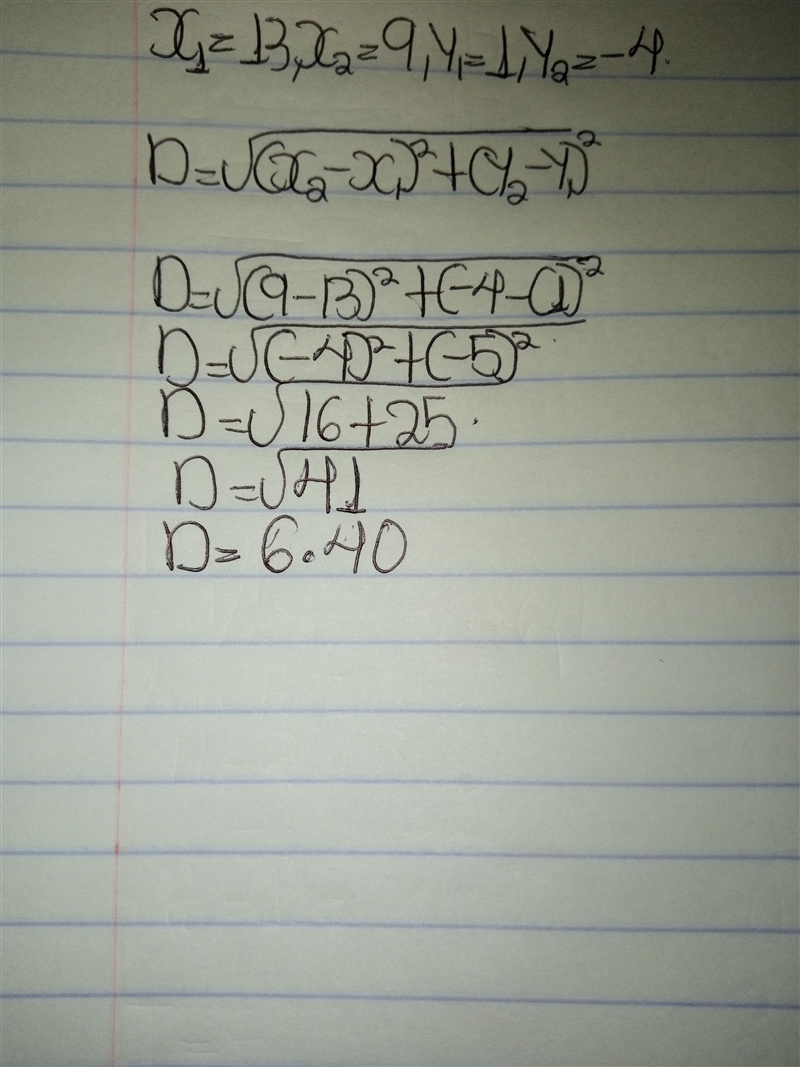 x₁=13,x₂=9,y₁=1,y₂=-4.
D=√(x₂-x₁)²+(y₂-y₁)²
D=√(9-13)²+(-4-(1)²
D=√(-4)²+(-5)²
D=√16+25.
D=√41
D=6.40